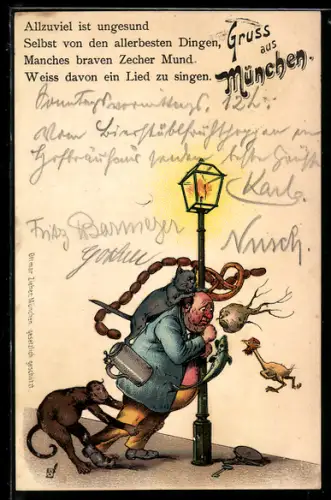 Allzuviel ist ungesund
Selbst von den allerbesten Dingen,
Manches braven Zecher Mund
Weiss davon ein Lied zu singen.
Gruss
aus
München.
Sonntags vormittags. 12 h.
Vom Bierstüblfrühschoppen im
Hofbräuhaus senden beste Grüße
Karl.
Fritz
Nusch.
Ottmar Zieher, München, gesetzlich geschützt.